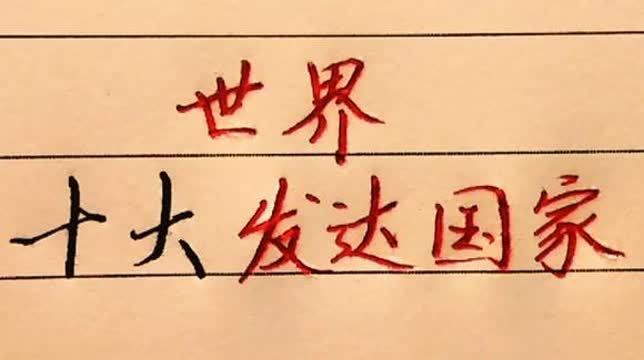 世界
十大发达国家